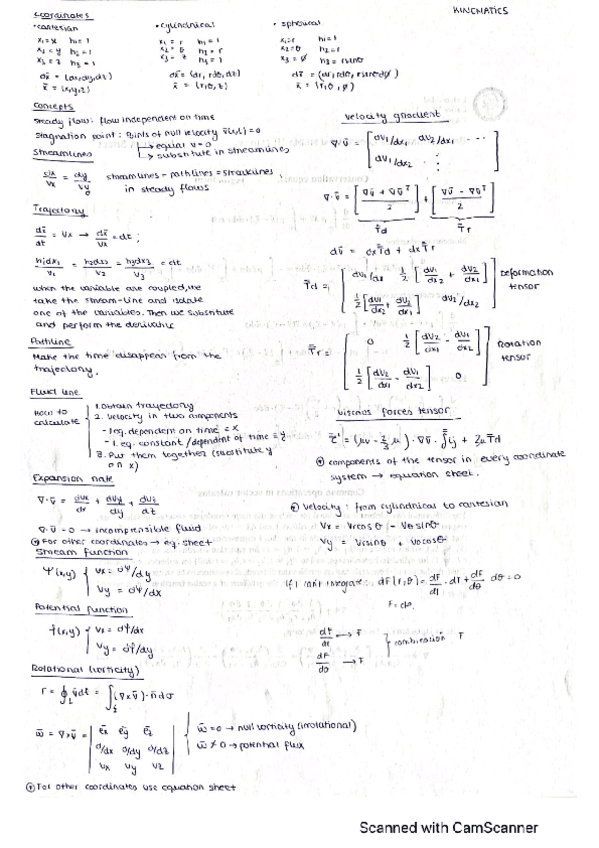 KINEMATICS
Coordinates
• cartesian
x₁=x h₁=1
x₂=y h₂=1
x₃=z h₃=1
dx̄ = (dx,dy,dz)
x̄ = (x,y,z)
• cylindrical
x₁=r h₁=1
x₂=θ h₂=r
x₃=z h₃=1
dx̄ = (dr, rdθ, dz)
x̄ = (r,θ,z)
• spherical
x₁=r h₁=1
x₂=θ h₂=r
x₃=φ h₃=rsinθ
dx̄ = (dr, rdθ, rsinθdφ)
x̄ = (r,θ,φ)
Concepts
Steady flow: flow independent on time
Stagnation point: points of null velocity v̄(x,t)=0
→ equal v=0
→ substitute in streamlines
Streamlines
dx/vx = dy/vy
streamlines = pathlines = streaklines
in steady flows
Trajectory
dx̄/dt = vx → dx̄/vx = dt ;
h₁dx₁/v₁ = h₂dx₂/v₂ = h₃dx₃/v₃ = dt
when the variable are coupled, we
take the stream-line and isolate
one of the variables. Then we substitute
and perform the derivative
Pathline
Make the time disappear from the
trajectory.
Fluid line
How to
calculate
1. Obtain trajectory
2. velocity in two components
- 1 eq. dependent on time = x
- 1. eq. constant / dependent of time = y
3. Put them together (substitute y
on x)
Expansion rate
∇·v̄ = dvx/dx + dvy/dy + dvz/dz
∇·v̄ = 0 → incompressible fluid
For other coordinates → eq. sheet
Stream function
Ψ(x,y) { vx = dΨ/dy
vy = dΨ/dx
Potential function
f(x,y) { vx = df/dx
vy = df/dy
Rotational (vorticity)
Γ = ∮L v̄dl = ∫Σ (∇×v̄)·n̄dσ
w̄ = ∇×v̄ = | ēx ēy ēz
d/dx d/dy d/dz
vx vy vz |
w̄ = 0 → null vorticity (irrotational)
w̄ ≠ 0 → potential flux
For other coordinates use equation sheet
Velocity gradient
∇·v̄ = [ dv₁/dx₁ dv₂/dx₁ ...
dv₁/dx₂ ⋮ ]
∇·v̄ = [ (∇v̄ + ∇v̄ᵀ)/2 ] + [ (∇v̄ - ∇v̄ᵀ)/2 ]
T̄d T̄r
dv̄ = dxT̄d + dxT̄r
T̄d = [ dv₁/dx 1/2 [dv₁/dx₂ + dv₂/dx₁]
1/2 [dv₁/dx₂ + dv₂/dx₁] dv₂/dx₂ ]
Deformation
tensor
T̄r = [ 0 1/2 [dv₂/dx₁ - dv₁/dx₂]
1/2 [dv₁/dx₂ - dv₂/dx₁] 0 ]
Rotation
tensor
Viscous forces tensor
τ̄' = (μv - 2/3 μ) · ∇·v̄ · Īij + 2μT̄d
components of the tensor in every coordinate
system → equation sheet.
Velocity: from cylindrical to cartesian
Vx = Vrcosθ - Vθsinθ
Vy = Vrsinθ + Vθcosθ
If I can't integrate: dF(r,θ) = dF/dr · dr + dF/dθ dθ = 0
dF/dr → F
dF/dθ → F
combination F
Scanned with CamScanner